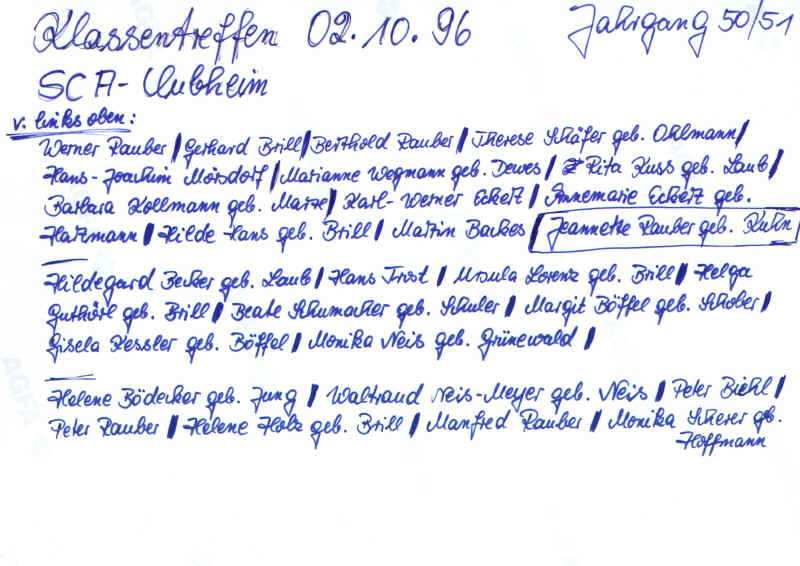 Klassentreffen 02.10.96 Jahrgang 50/51
SCA-Urbheim
v. links oben:
Werner Rauber / Gerhard Brill / Berthold Rauber / Therese Schäfer geb. Ohlmann /
Hans-Joachim Mörsdorf / Marianne Wegmann geb. Dewes / Rita Kuss geb. Laub /
Barbara Kollmann geb. / Karl-Werner Eckert / Annemarie Eckert geb.
Hartmann / Hilde Hans geb. Brill / Martin Backes / Jeannette Rauber geb. Kuhn /
Hildegard Becker geb. Laub / Hans Trost / Ursula Lorenz geb. Brill / Helga
Guthörl geb. Brill / Beate Schumacher geb. Schuler / Margit Böffel geb. Schober /
Gisela Kessler geb. Böffel / Monika Neis geb. Grünewald /
Helene Bödecker geb. Jung / Waltraud Neis-Meyer geb. Neis / Peter Biehl /
Peter Rauber / Helene Holz geb. Brill / Manfred Rauber / Monika Scherer geb.
Hoffmann
AGFA